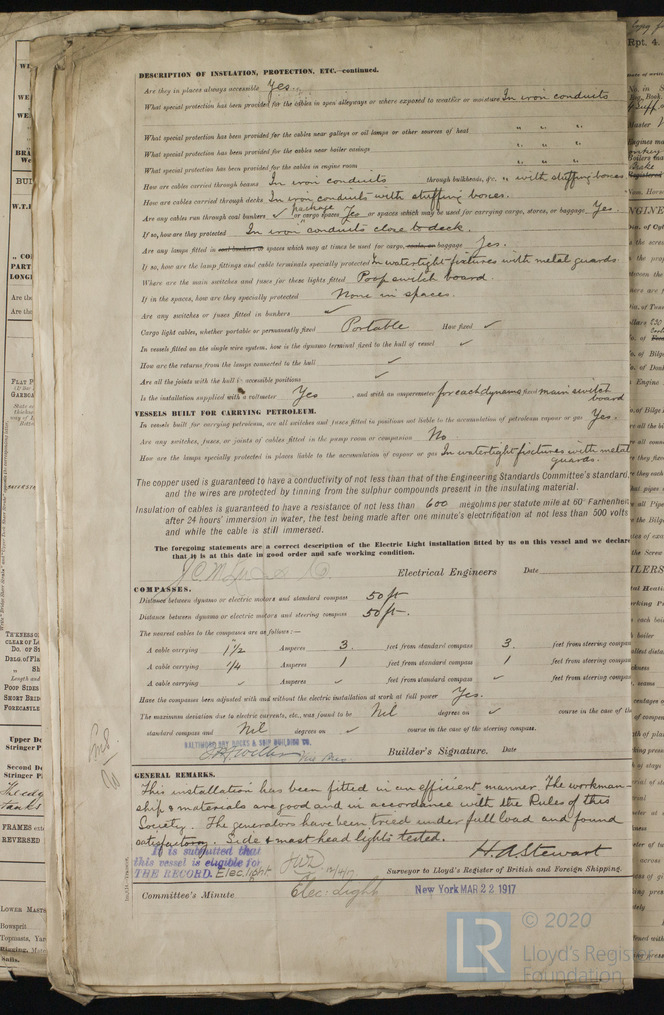 DESCRIPTION OF INSULATION, PROTECTION, ETC. continued.
Are they in places always accessible Yes.
What special protection has been provided for the cables in open alleyways or where exposed to weather or moisture In iron conduits
What special protection has been provided for the cables near galleys or oil lamps or other sources of heat " " "
What special protection has been provided for the cables near boiler casings " " "
What special protection has been provided for the cables in engine room " " "
How are cables carried through beams In iron conduits through bulkheads, &c. " with stuffing boxes
How are cables carried through decks In iron conduits with stuffing boxes.
Are any cables run through coal bunkers ✓ or cargo spaces package Yes or spaces which may be used for carrying cargo, stores, or baggage Yes.
If so, how are they protected In iron conduits close to deck.
Are any lamps fitted in coal bunkers or spaces which may at times be used for cargo, coals, or baggage Yes.
If so, how are the lamp fittings and cable terminals specially protected In watertight fixtures with metal guards
Where are the main switches and fuses for these lights fitted Poop switch board
If in the spaces, how are they specially protected None in spaces.
Are any switches or fuses fitted in bunkers ✓
Cargo light cables, whether portable or permanently fixed Portable How fixed ✓
In vessels fitted on the single wire system, how is the dynamo terminal fixed to the hull of vessel ✓
How are the returns from the lamps connected to the hull ✓
Are all the joints with the hull in accessible positions ✓
Is the installation supplied with a voltmeter Yes, and with an amperemeter for each dynamo fixed main switch board
VESSELS BUILT FOR CARRYING PETROLEUM.
In vessels built for carrying petroleum, are all switches and fuses fitted in positions not liable to the accumulation of petroleum vapour or gas Yes.
Are any switches, fuses, or joints of cables fitted in the pump room or companion No
How are the lamps specially protected in places liable to the accumulation of vapour or gas In watertight fixtures with metal guards.
The copper used is guaranteed to have a conductivity of not less than that of the Engineering Standards Committee's standard,
and the wires are protected by tinning from the sulphur compounds present in the insulating material.
Insulation of cables is guaranteed to have a resistance of not less than 600 megohms per statute mile at 60° Farhenheit
after 24 hours' immersion in water, the test being made after one minute's electrification at not less than 500 volts
and while the cable is still immersed.
The foregoing statements are a correct description of the Electric Light installation fitted by us on this vessel and we declare
that it is at this date in good order and safe working condition.
Electrical Engineers Date
COMPASSES.
Distance between dynamo or electric motors and standard compass 50 ft
Distance between dynamo or electric motors and steering compass 50 ft.
The nearest cables to the compasses are as follows:—
A cable carrying 1 1/2 Amperes 3. feet from standard compass 3. feet from steering compass
A cable carrying 1/4 Amperes 1 feet from standard compass 1 feet from steering compass
A cable carrying ✓ Amperes ✓ feet from standard compass ✓ feet from steering compass
Have the compasses been adjusted with and without the electric installation at work at full power Yes.
The maximum deviation due to electric currents, etc., was found to be Nil degrees on ✓ course in the case of the
standard compass and Nil degrees on ✓ course in the case of the steering compass.
BALTIMORE DRY DOCKS & SHIP BUILDING CO.
Builder's Signature. Date
GENERAL REMARKS.
This installation has been fitted in an efficient manner. The workman-
ship & materials are good and in accordance with the Rules of this
Society. The generators have been tried under full load and found
satisfactory. Side & mast head lights tested.
H. A. Stewart
It is submitted that
this vessel is eligible for
THE RECORD. Elec. light
Surveyor to Lloyd's Register of British and Foreign Shipping.
Committee's Minute Elec. Light New York MAR 22 1917
© 2020
LR Lloyd's Register
Foundation